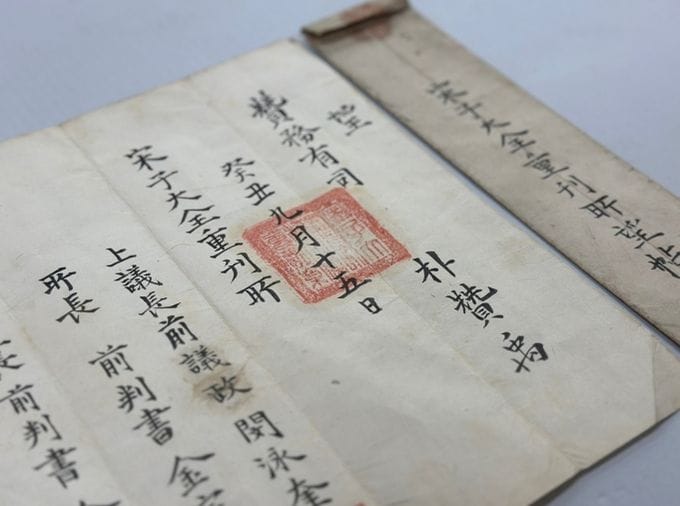 宋子大全重刊所望帖
望
贊務有司 朴贊禹
癸丑九月十五日
宋子大全重刊所
上議長前議政 閔泳奎
所長 前判書 金
長 前判書 金